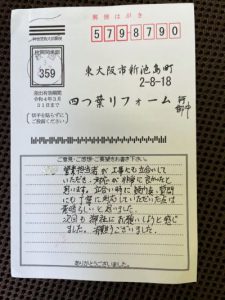 郵便はがき
5798790
359
差出有効期間
令和4年3月
31日まで
(切手を貼らずに
ご投函ください)
東大阪市新池島町
2-8-18
四つ葉リフォーム 行
御中
ご意見・ご感想・ご要望をお書き下さい。
営業担当者が 工事にも立合して
いただき、対応が 非常に良かったと
思います。立合い時に 質問
にも丁寧に対応していただいた点は
素晴らしいと思いました。
次回も 御社に お願いしようと感じ
ました。有難うございました。
ありがとうございました。